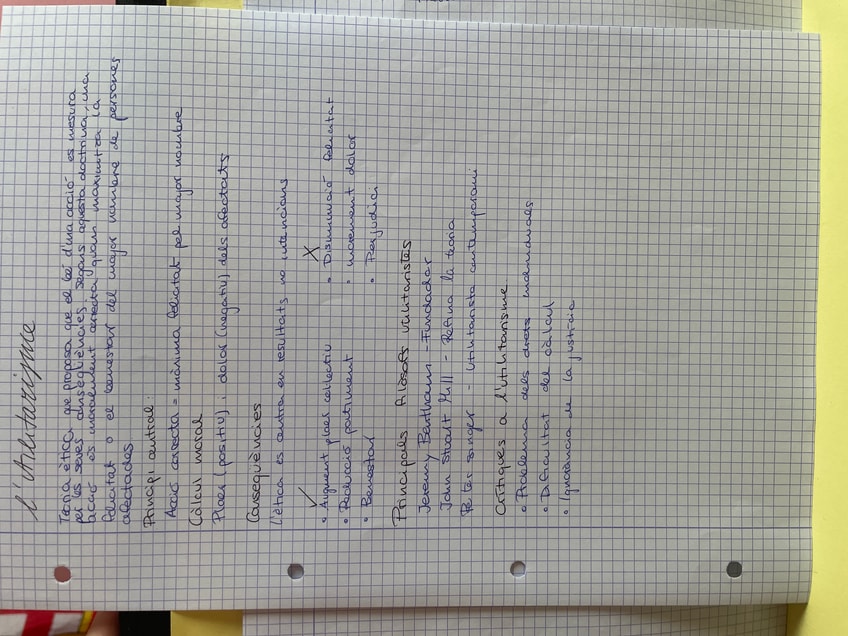 L'Utilitarisme
Teoria ètica que proposa que el bé d'una acció es mesura
per les seves conseqüències. Segons aquesta doctrina, una
acció és moralment correcta quan maximitza la
felicitat o el benestar del major nombre de persones
afectades
Principi central:
Acció correcta = màxima felicitat pel major nombre
Càlcul moral
Plaer (positiu) i dolor (negatiu) dels afectats
Conseqüències
L'ètica es centra en resultats no intencions
✓ X
• Augment plaer col·lectiu • Disminució felicitat
• Reducció patiment • Increment dolor
• Benestar • Perjudici
Principals filòsofs utilitaristes
Jeremy Bentham - Fundador
John Stuart Mill - Refina la teoria
Peter Singer - Utilitarista contemporani
Crítiques a l'utilitarisme
• Problema dels drets individuals
• Dificultat del càlcul
• Ignorància de la justícia